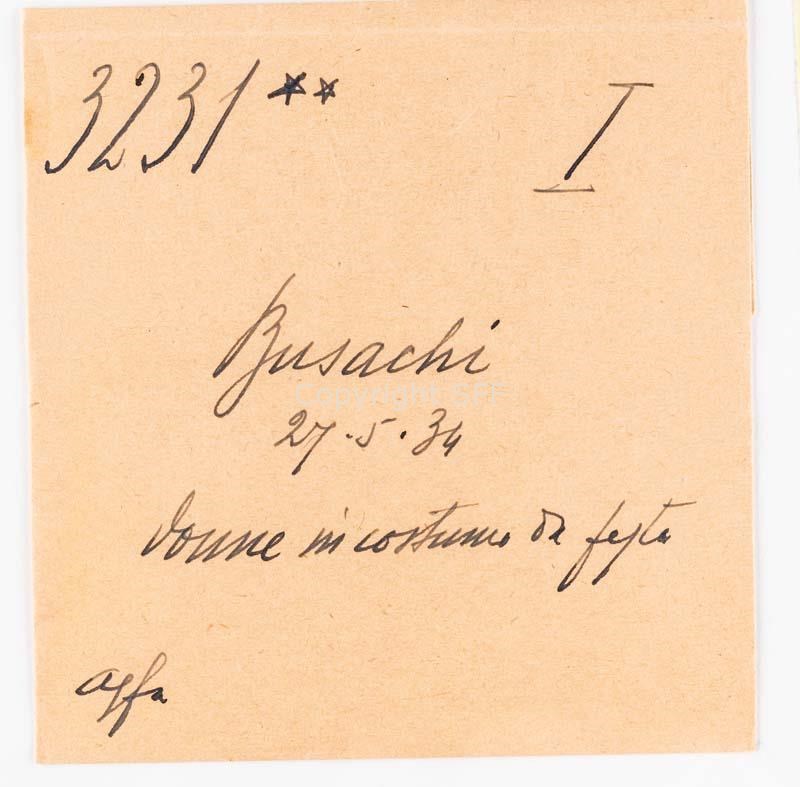 3231** I
Busachi
Copyright SFF
27.5.34
donne in costume da festa
agfa